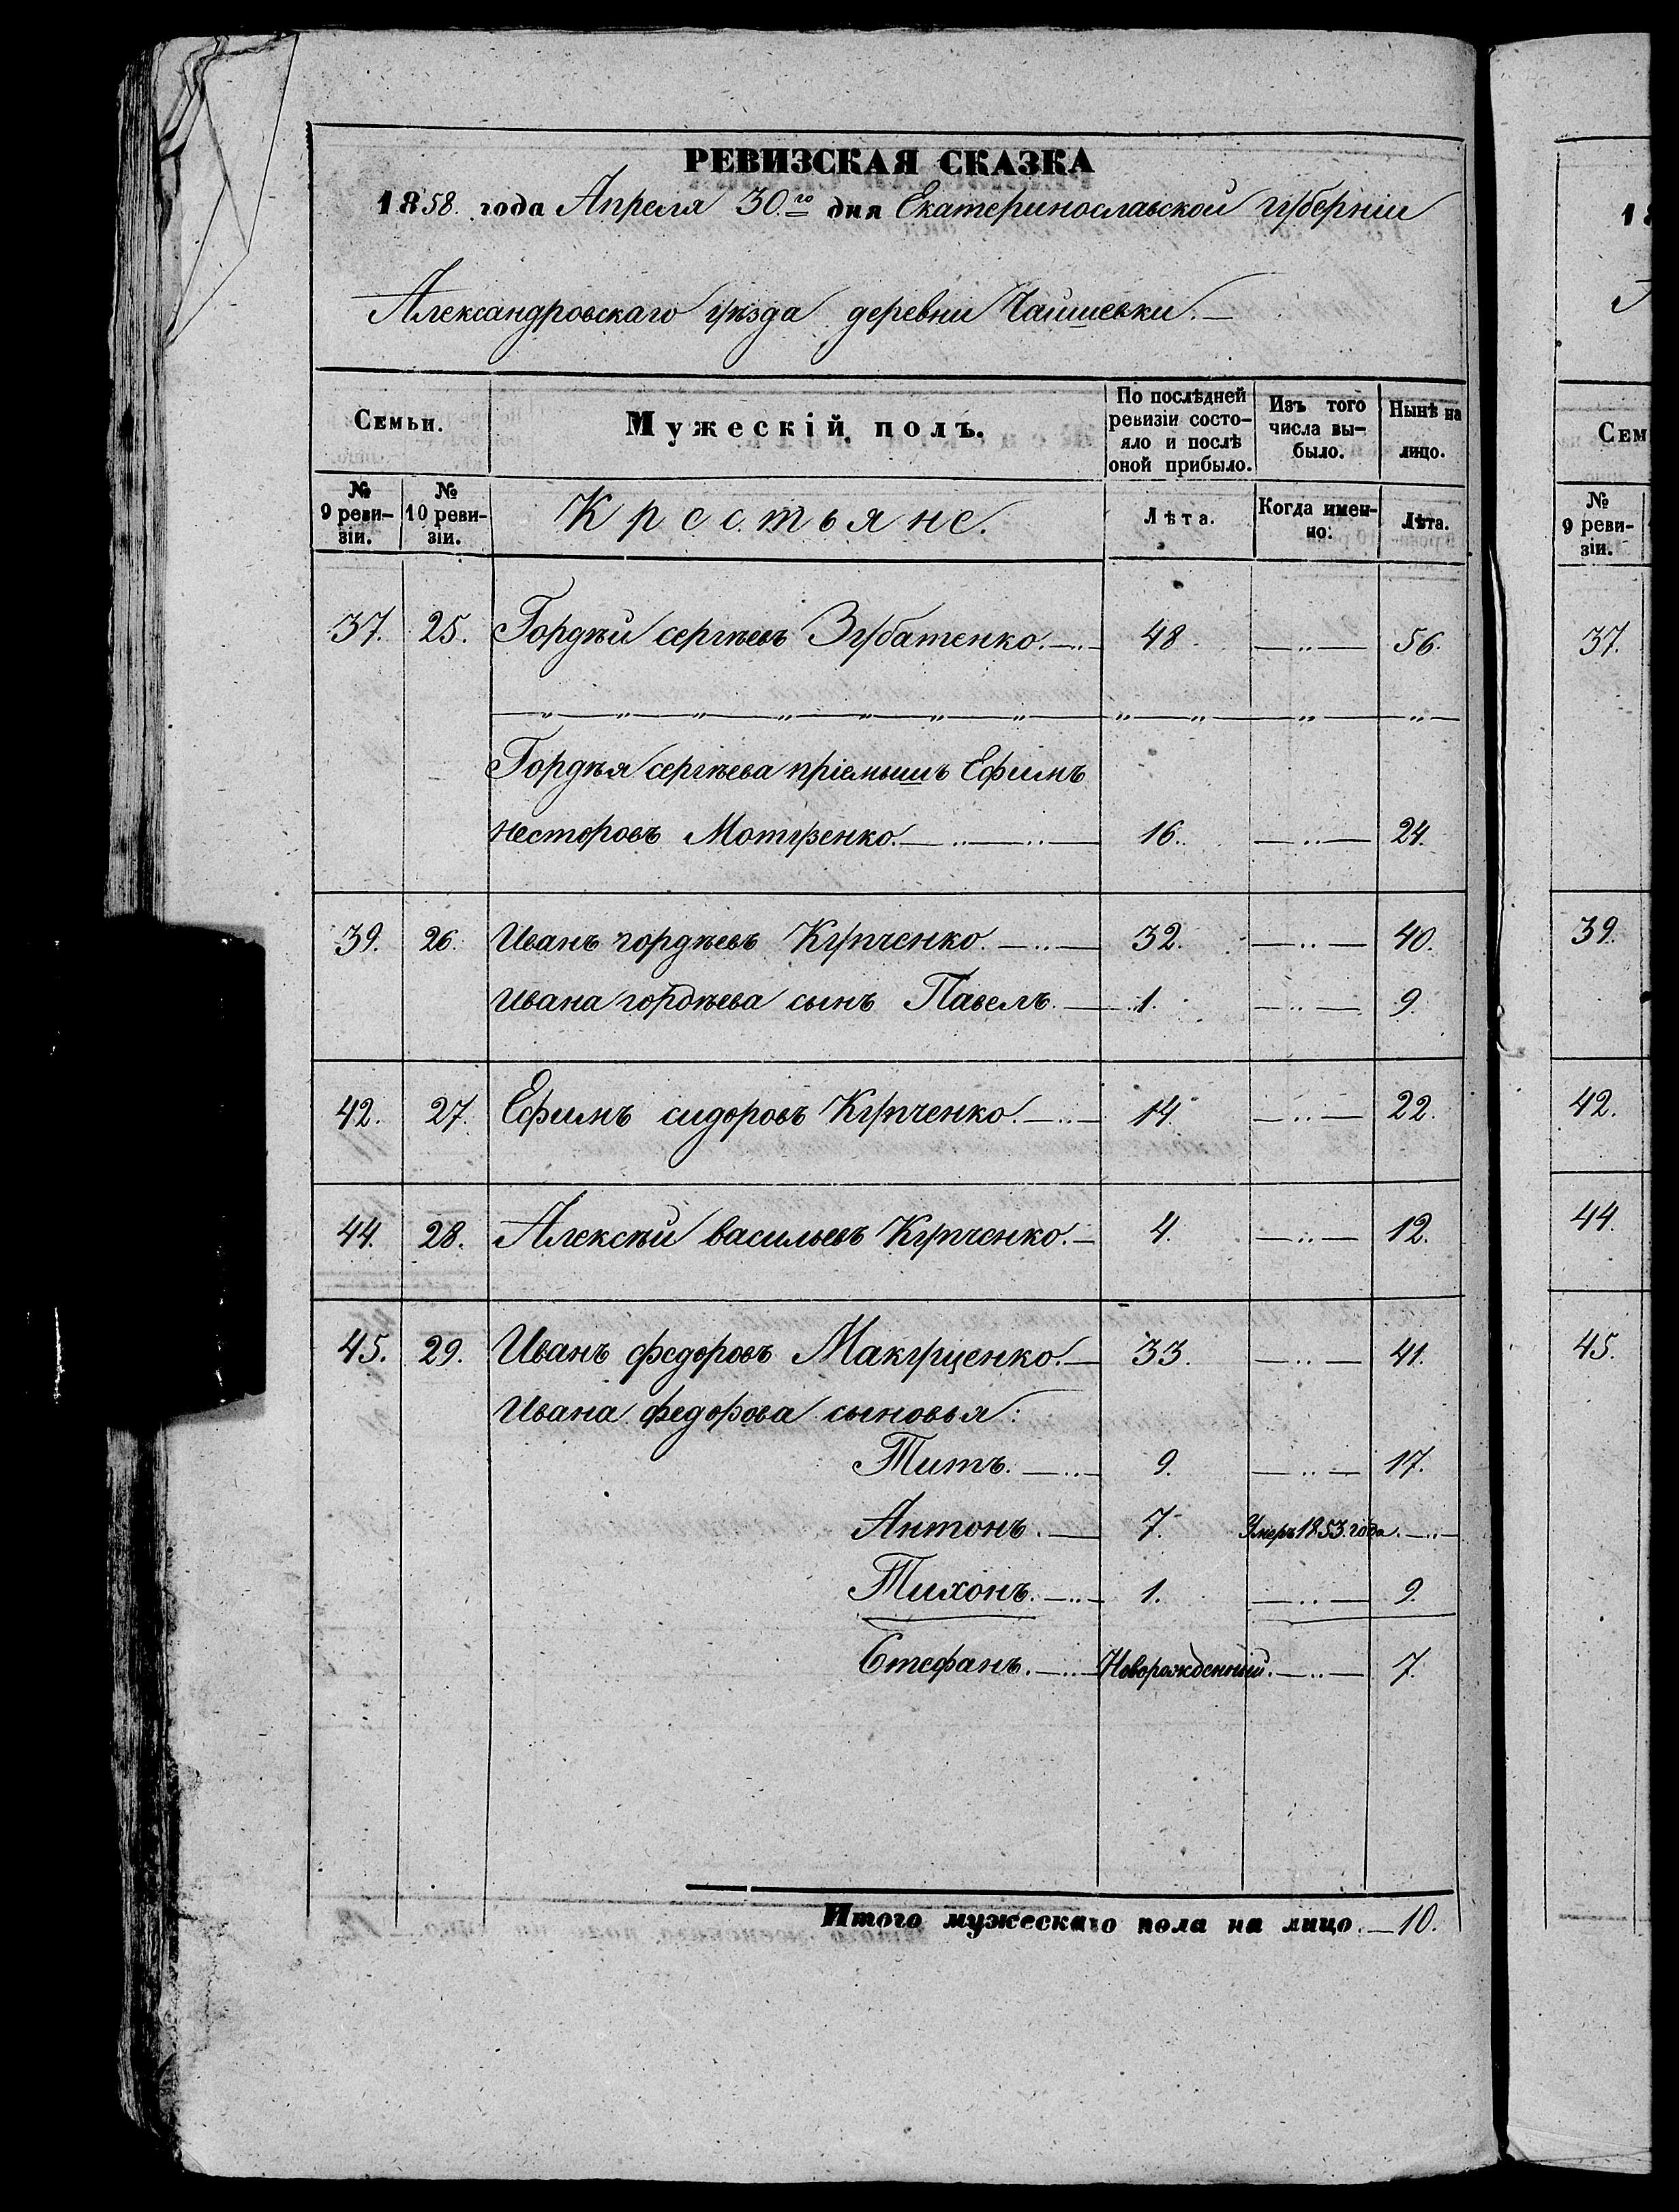 РЕВИЗСКАЯ СКАЗКА
1858. года Апреля 30.го дня Екатеринославской губерніи
Александровскаго уѣзда деревни
Семьи.
Мужескій полъ.
По послѣдней ревизіи состояло и послѣ оной прибыло.
Изъ того числа выбыло.
Нынѣ на лицо.
№ 9 ревизіи.
№ 10 ревизіи.
Крестьяне.
Лѣта.
Когда именно.
Лѣта.
37. 25. Гордѣй сергѣевъ Зубатенко. —„— 48 —„— 56.
—„—„—„—„—„—„—„— „—„ —„— „—
Гордѣя сергѣева пріемышъ Ефимъ
Несторовъ Мотузенко. —„—„— 16. —„— 24.
39. 26. Иванъ гордѣевъ Купченко. —„— 32. —„— 40.
Ивана гордѣева сынъ Павелъ. — 1. —„— 9.
42. 27. Ефимъ сидоровъ Купченко. —„— 14. —„— 22.
44. 28. Алексѣй васильевъ Купченко. — 4. —„— 12.
45. 29. Иванъ федоровъ Макущенко. — 33. —„— 41.
Ивана федорова сыновья:
Титъ. —„— 9. —„— 17.
Антонъ. — 7. Умеръ 1853. года. —„—
Тихонъ. —„— 1. —„— 9.
Стефанъ. —„— Новорожденный. —„— 7.
Итого мужескаго пола на лицо. — 10.
18
Сем
№
9 реви-
зіи.
37.
39.
42.
44.
45.